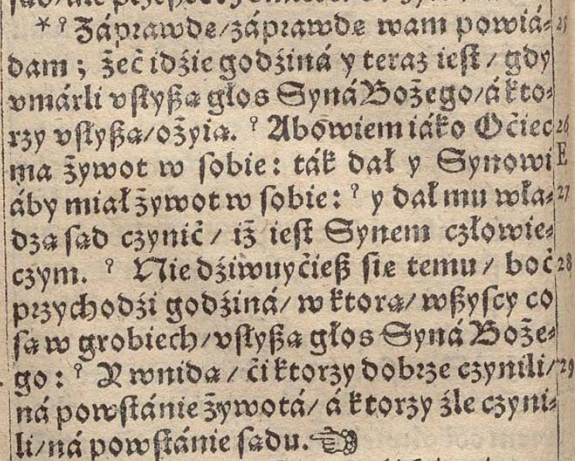 *⁹ Záprawdę/záprawdę wam powiá⸗ 25
dam; żeć idźie godźiná y teraz ieſt/ gdy
vmárli vſłyßą głos Syná Bożego/á kto⸗
rzy vſłyßą/ożyią. ⁹ Abowiem iáko Oćiec 26
ma żywot w ſobie: ták dał y Synowi E
áby miał żywot w ſobie: ⁹ y dał mu wła⸗ 27
dzą ſąd czynić/ iż ieſt Synem człowie⸗
czym. ⁹ Nie dźiwuyćieß ſię temu/ boć 28
przychodźi godźiná/ w ktorą/ wßyſcy co
ſą w grobiech/vſłyßą głos Syná Boże⸗
go: ⁹ Y wnidą/ ći ktorzy dobrze czynili/ 29
ná powſtánie żywotá/ á ktorzy źle czyni⸗
li/ná powſtánie ſądu. ☜